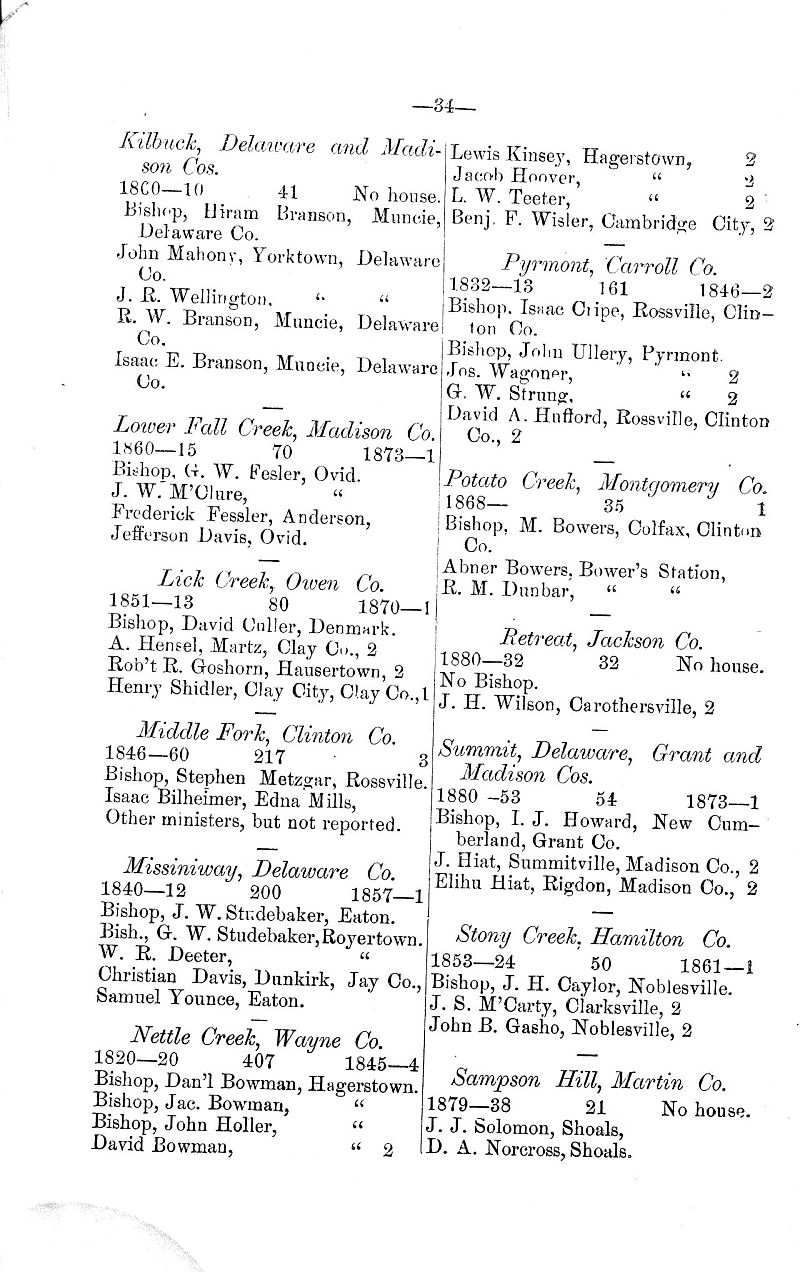 —34—
Kilbuck, Delaware and Madi-
son Cos.
1860—10 41 No house.
Bishop, Hiram Branson, Muncie,
Delaware Co.
John Mahony, Yorktown, Delaware
Co.
J. R. Wellington, “ “
R. W. Branson, Muncie, Delaware
Co.
Isaac E. Branson, Muncie, Delaware
Co.
Lower Fall Creek, Madison Co.
1860—15 70 1873—1
Bishop, G. W. Fesler, Ovid.
J. W. M'Clure, “
Frederick Fessler, Anderson,
Jefferson Davis, Ovid.
Lick Creek, Owen Co.
1851—13 80 1870—1
Bishop, David Culler, Denmark.
A. Hensel, Martz, Clay Co., 2
Rob't R. Goshorn, Hausertown, 2
Henry Shidler, Clay City, Clay Co., 1
Middle Fork, Clinton Co.
1846—60 217 3
Bishop, Stephen Metzgar, Rossville.
Isaac Bilheimer, Edna Mills,
Other ministers, but not reported.
Missiniway, Delaware Co.
1840—12 200 1857—1
Bishop, J. W. Studebaker, Eaton.
Bish., G. W. Studebaker, Royertown.
W. R. Deeter, “
Christian Davis, Dunkirk, Jay Co.,
Samuel Younce, Eaton.
Nettle Creek, Wayne Co.
1820—20 407 1845—4
Bishop, Dan'l Bowman, Hagerstown.
Bishop, Jac. Bowman, “
Bishop, John Holler, “
David Bowman, “ 2
Lewis Kinsey, Hagerstown, 2
Jacob Hoover, “ 2
L. W. Teeter, “ 2
Benj. F. Wisler, Cambridge City, 2
Pyrmont, Carroll Co.
1832—13 161 1846—2
Bishop, Isaac Cripe, Rossville, Clin-
ton Co.
Bishop, John Ullery, Pyrmont.
Jos. Wagoner, “ 2
G. W. Strung, “ 2
David A. Hufford, Rossville, Clinton
Co., 2
Potato Creek, Montgomery Co.
1868— 35 1
Bishop, M. Bowers, Colfax, Clinton
Co.
Abner Bowers, Bower's Station,
R. M. Dunbar, “ “
Retreat, Jackson Co.
1880—32 32 No house.
No Bishop.
J. H. Wilson, Carothersville, 2
Summit, Delaware, Grant and
Madison Cos.
1880—53 54 1873—1
Bishop, I. J. Howard, New Cum-
berland, Grant Co.
J. Hiat, Summitville, Madison Co., 2
Elihu Hiat, Rigdon, Madison Co., 2
Stony Creek, Hamilton Co.
1853—24 50 1861—1
Bishop, J. H. Caylor, Noblesville.
J. S. M'Carty, Clarksville, 2
John B. Gasho, Noblesville, 2
Sampson Hill, Martin Co.
1879—38 21 No house.
J. J. Solomon, Shoals,
D. A. Norcross, Shoals.